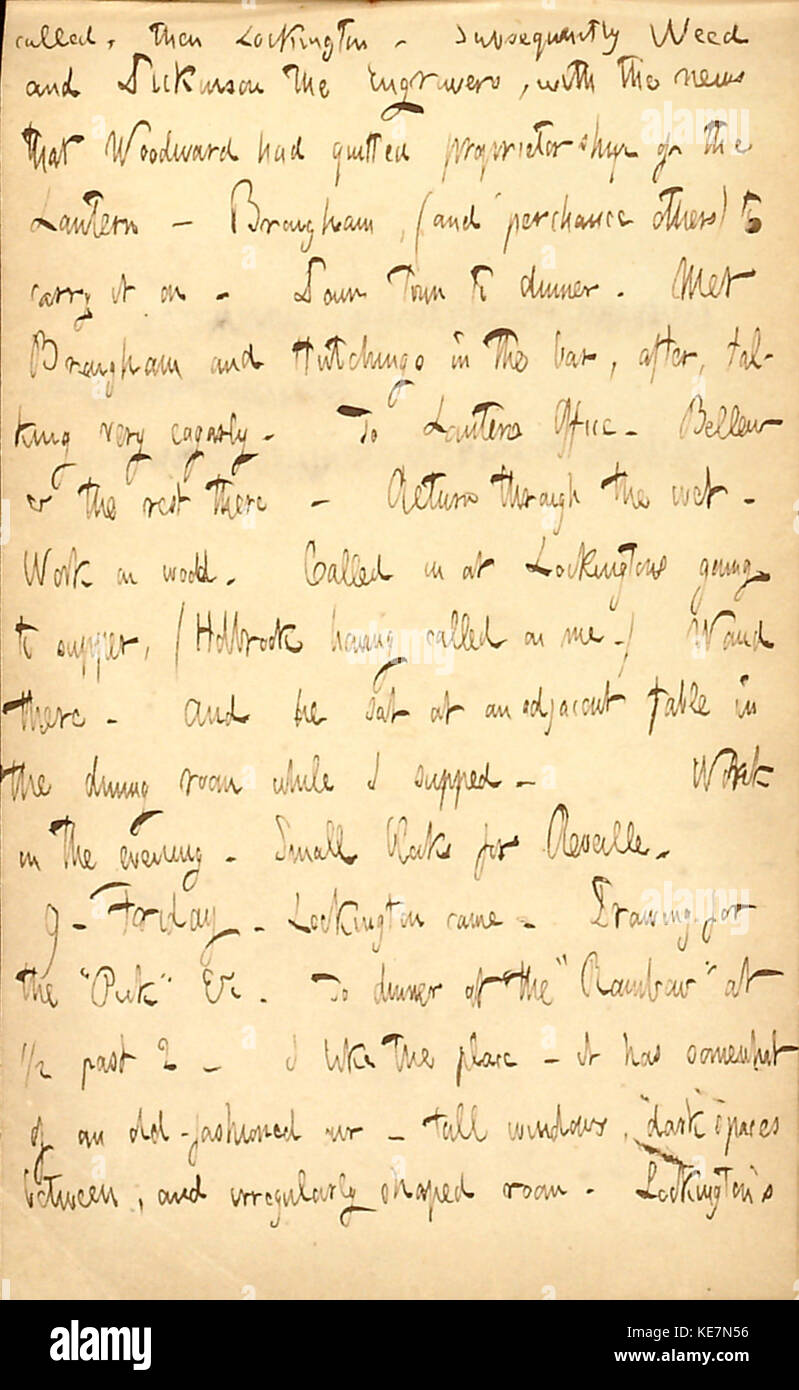 called, then Lockington - Subsequently Weed
and Dickinson the Engravers, with the news
that Woodward had quitted proprietorship of the
Lantern - Brougham, (and perchance others) to
carry it on - Down Town to dinner. Met
Brougham and Hutchings in the bar, after, tal-
king very eagarly - To Lantern Office - Bellew
& the rest there - Return through the wet -
Work on wood. Called in at Lockingtons going
to supper, (Holbrook having called on me -) Waud
there - and he sat at an adjacent table in
the dining room while I supped - Work
in the evening - Small blocks for Reveille.
9 - Friday - Lockington came - Drawing for
the "Pick" &c. To dinner at the "Rainbow" at
1/2 past 2 - I like the place - it has somewhat
of an old-fashioned air - tall windows, dark spaces
between, and irregularly shaped room - Lockington's
alamy
alamy
alamy
alamy
alamy
alamy stock photo
KE7N56
www.alamy.com